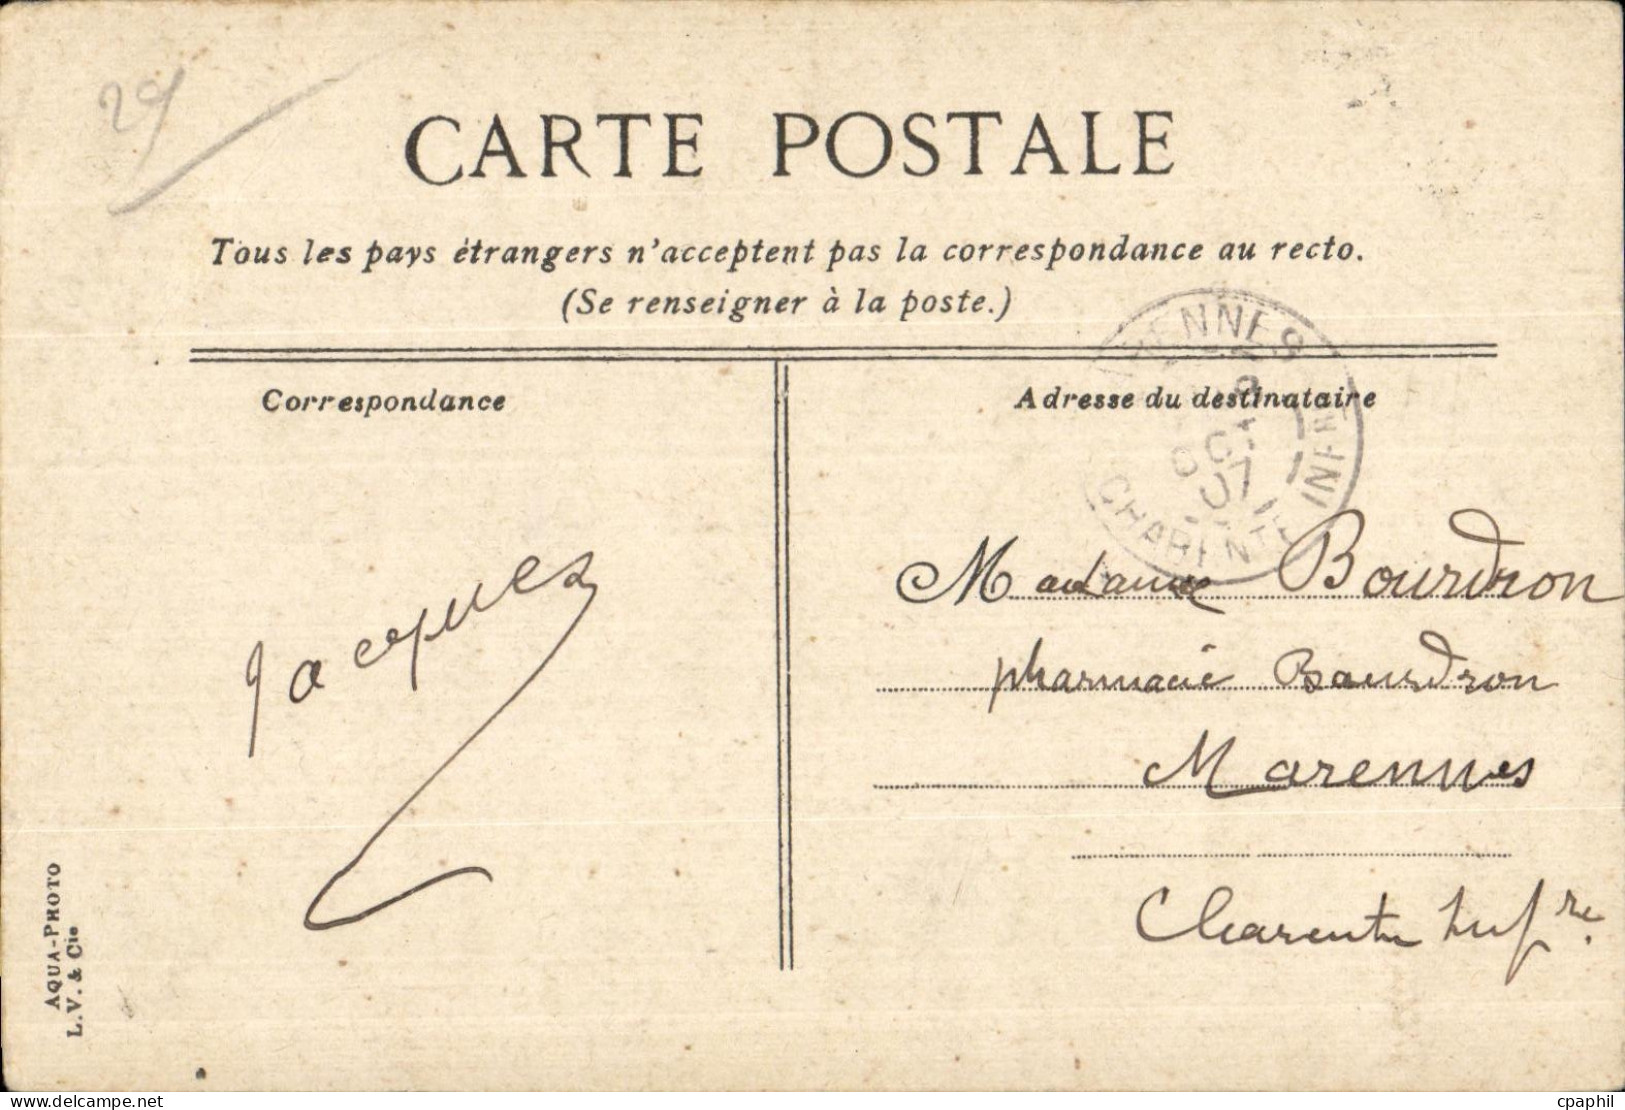 29
CARTE POSTALE
Tous les pays étrangers n'acceptent pas la correspondance au recto.
(Se renseigner à la poste.)
Correspondance
Adresse du destinataire
OCT
07
CHARENTE INFRE
Jacques
Madame Bourdron
pharmacie Bourdron
Marennes
Charente Infre.
AQUA-PHOTO
L. V. & Cie
cpaphil